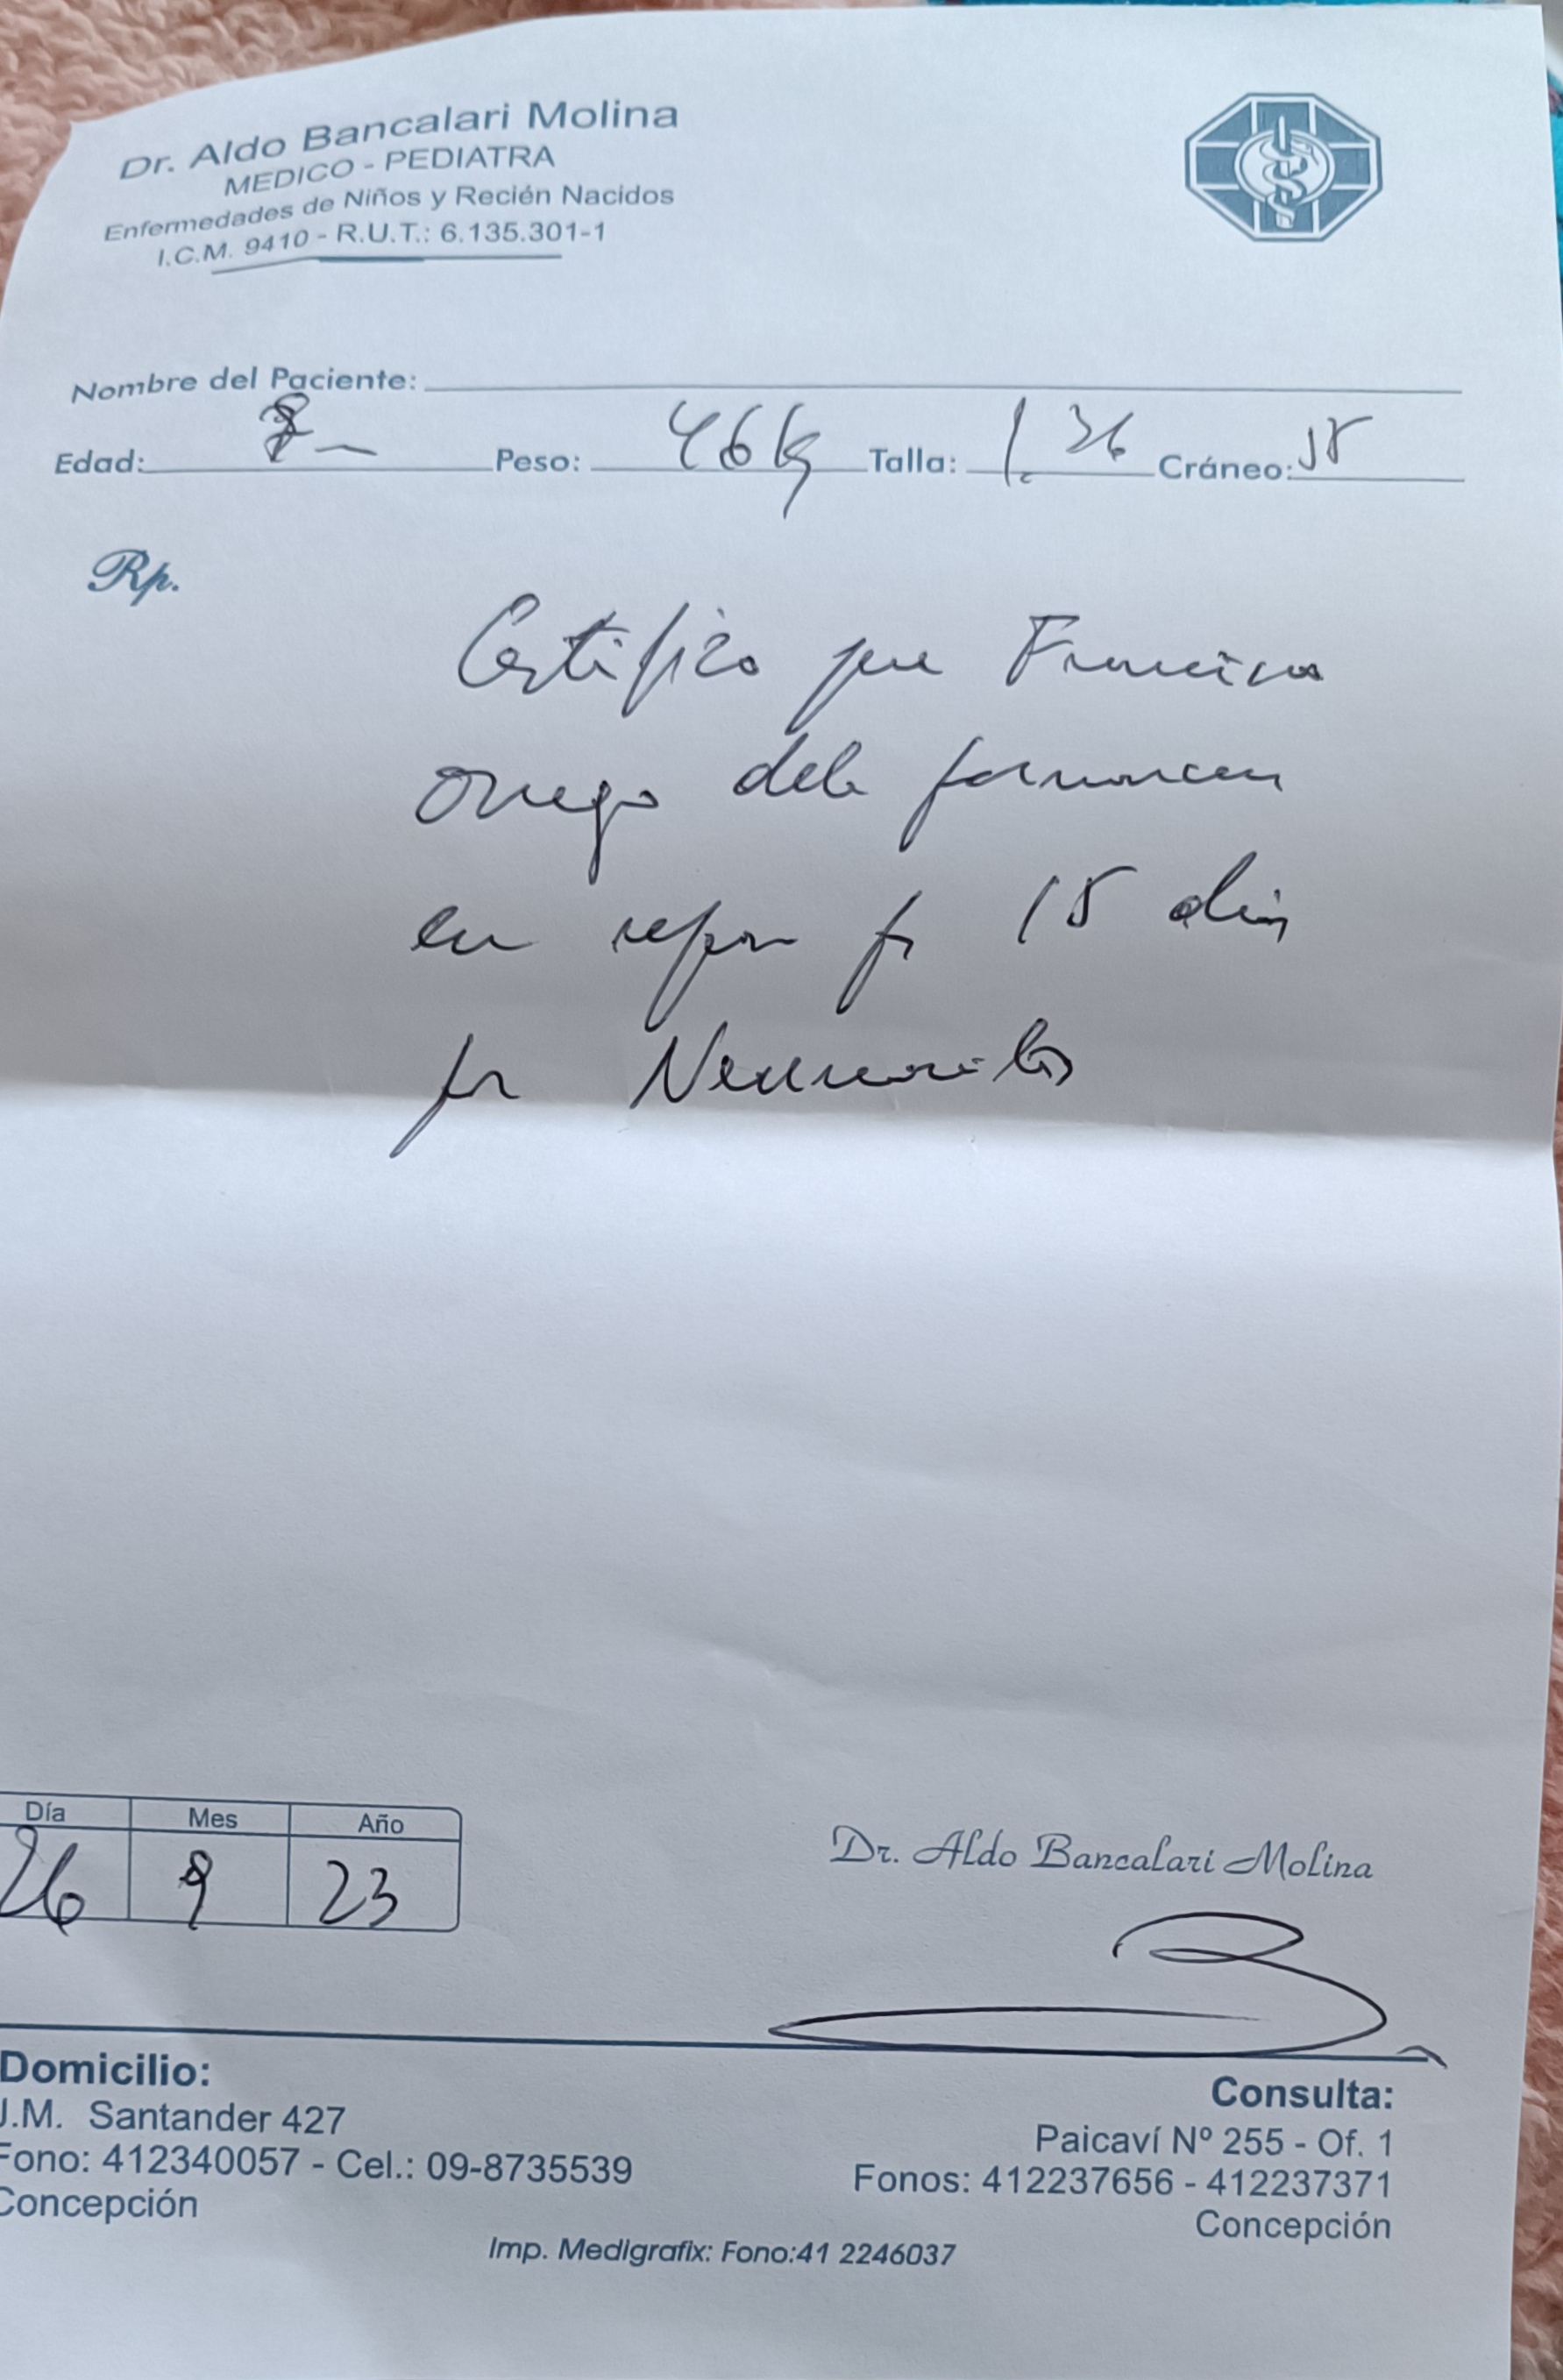 Dr. Aldo Bancalari Molina
MEDICO - PEDIATRA
Enfermedades de Niños y Recién Nacidos
I.C.M. 9410 - R.U.T.: 6.135.301-1
Nombre del Paciente:
Edad: 8 Peso: 46 kg Talla: 1.36 Cráneo:
Rp.
Certifico que Francisca
Orrego debe permanecer
en reposo por 15 días
por
Día Mes Año
26 9 23
Dr. Aldo Bancalari Molina
Domicilio:
J.M. Santander 427
Fono: 412340057 - Cel.: 09-8735539
Concepción
Consulta:
Paicaví Nº 255 - Of. 1
Fonos: 412237656 - 412237371
Concepción
Imp. Medigrafix: Fono:41 2246037